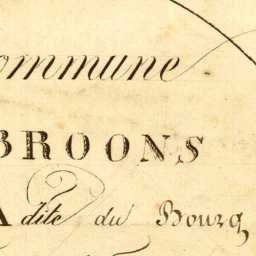 ommune
BROONS
A dite du Bourg